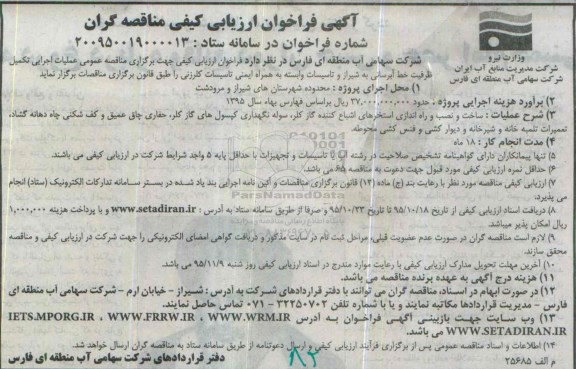 آگهی فراخوان ارزیابی کیفی مناقصه گران
شماره فراخوان در سامانه ستاد : ۲۰۰۹۵۰۰۱۹۰۰۰۰۱۳
وزارت نیرو
شرکت مدیریت منابع آب ایران
شرکت سهامی آب منطقه ای فارس
شرکت سهامی آب منطقه ای فارس در نظر دارد فراخوان ارزیابی کیفی جهت برگزاری مناقصه عمومی عملیات اجرایی تکمیل
ظرفیت خط آبرسانی به شیراز و تاسیسات وابسته به همراه ایمنی تاسیسات کلرزنی را طبق قانون برگزاری مناقصات برگزار نماید
۱) محل اجرای پروژه : محدوده شهرستان های شیراز و مرودشت
۲) برآورد هزینه اجرایی پروژه : حدود ۲۷,۰۰۰,۰۰۰,۰۰۰ ریال براساس فهارس بهاء سال ۱۳۹۵
۳) شرح عملیات : ساخت و نصب و راه اندازی استخرهای اشباع کننده گاز کلر، سوله نگهداری کپسول های گاز کلر، حفاری چاق عمیق و کف شکنی چاه دهانه گشاد،
تعمیرات تلمبه خانه و شیرخانه و دیوار کشی و فنس کشی محوطه.
۴) مدت انجام کار : ۱۸ ماه
۵) تنها پیمانکاران دارای گواهینامه تشخیص صلاحیت در رشته آب یا تاسیسات و تجهیزات با حداقل پایه ۵ واجد شرایط شرکت در ارزیابی کیفی می باشند.
۶) حداقل نمره ارزیابی کیفی مورد قبول جهت دعوت به مناقصه ۶۵ می باشد.
۷) ارزیابی کیفی مناقصه مورد نظر با رعایت بند (ج) ماده (۱۲) قانون برگزاری مناقصات و آئین نامه اجرایی بند یاد شده در بستر سامانه تدارکات الکترونیک (ستاد) انجام
می پذیرد.
۸) دریافت اسناد ارزیابی کیفی از تاریخ ۹۵/۱۰/۱۸ تا تاریخ ۹۵/۱۰/۲۳ و صرفا از طریق سامانه ستاد به آدرس : www.setadiran.ir و با پرداخت هزینه ۱,۰۰۰,۰۰۰
ریال امکان پذیر میباشد.
۹) لازم است مناقصه گران در صورت عدم عضویت قبلی، مراحل ثبت نام در سایت مذکور و دریافت گواهی امضای الکترونیکی را جهت شرکت در ارزیابی کیفی و مناقصه
محقق سازند.
۱۰) آخرین مهلت تحویل مدارک ارزیابی کیفی با رعایت موارد مندرج در اسناد ارزیابی کیفی روز شنبه ۹۵/۱۱/۹ می باشد.
۱۱) هزینه درج آگهی به عهده برنده مناقصه می باشد.
۱۲) در صورت ابهام در اسناد، مناقصه گران می توانند با دفتر قراردادهای شرکت به آدرس : شیراز - خیابان ارم - شرکت سهامی آب منطقه ای
فارس - مدیریت قراردادها مکاتبه نمایند و یا با شماره تلفن ۳۲۲۵۰۷۰۲ - ۰۷۱ تماس حاصل نمایند.
۱۳) وب سایت جهت بازبینی آگهی فراخوان به آدرس IETS.MPORG.IR ، WWW.FRRW.IR ، WWW.WRM.IR ،
WWW.SETADIRAN.IR می باشد.
۱۴) اطلاعات و اسناد مناقصه عمومی پس از برگزاری فرآیند ارزیابی کیفی و ارسال دعوتنامه از طریق سامانه ستاد به مناقصه گران ارسال خواهد شد.
م الف ۲۵۶۸۵
دفتر قراردادهای شرکت سهامی آب منطقه ای فارس